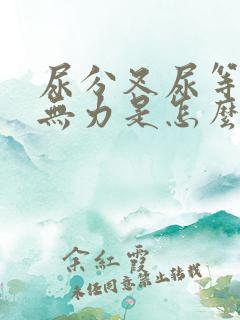 尿分叉尿等
無力是怎麼
余紅霞
未经同意禁止转载